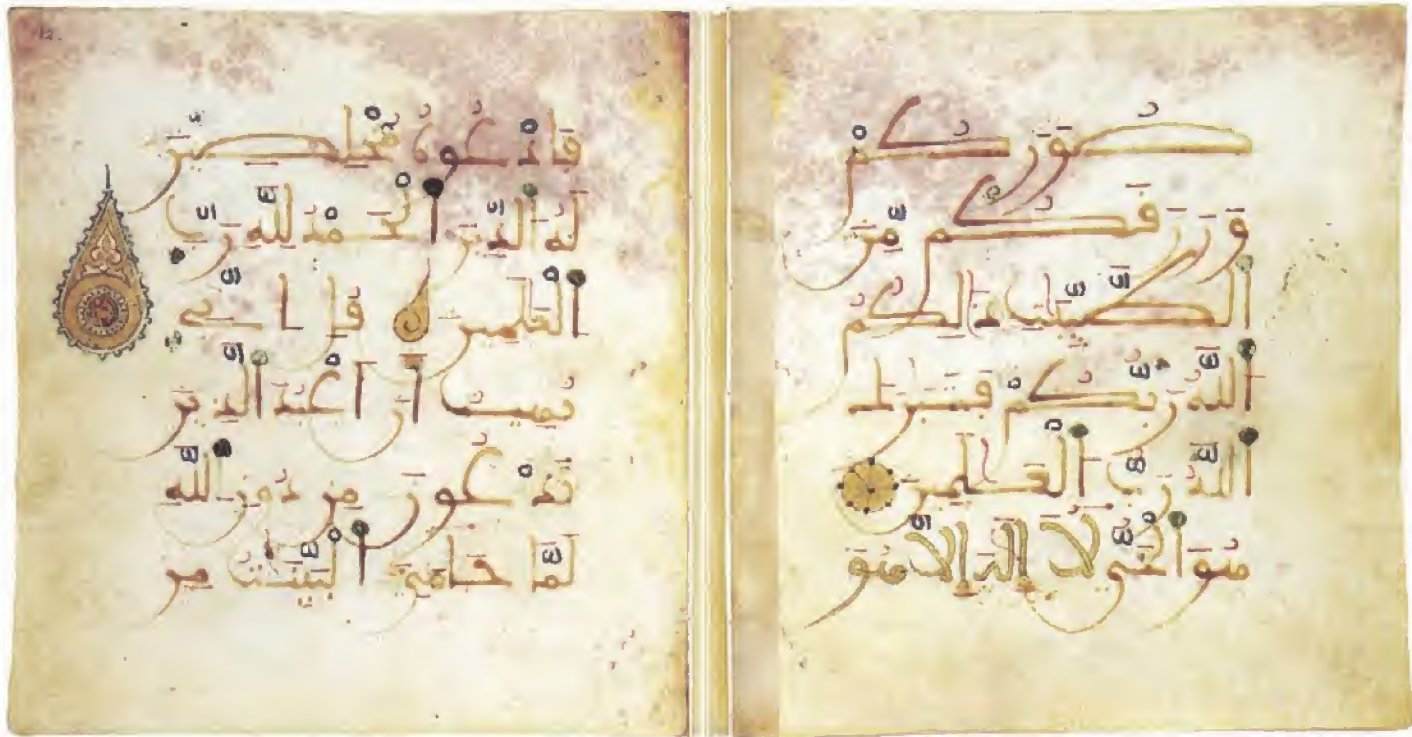 صوركم
ورزقكم من
الطيبت ذلكم
الله ربكم فتبرك
الله رب العلمين
هو الحي لا إله إلا هو
فادعوه مخلصين
له الدين الحمد لله رب
العلمين قل إني
نهيت أن أعبد الذين
تدعون من دون الله
لما جاءني البينت من